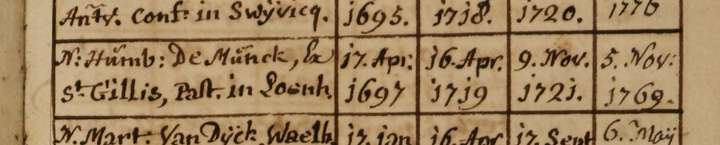 Antv. Conf: in Swÿvicq. 1695. 1718. 1720. 1770
N: Humb: De Münck, Ex 17. Apr. 16. Apr. 9. Nov. 5. Nov:
St. Gillis, Past. in Loenh. 1697 1719 1721. 1769.
N. Mart: Van Dÿck, Waelh. 17. jan 16. Apr 17. Sept 6. Maÿ